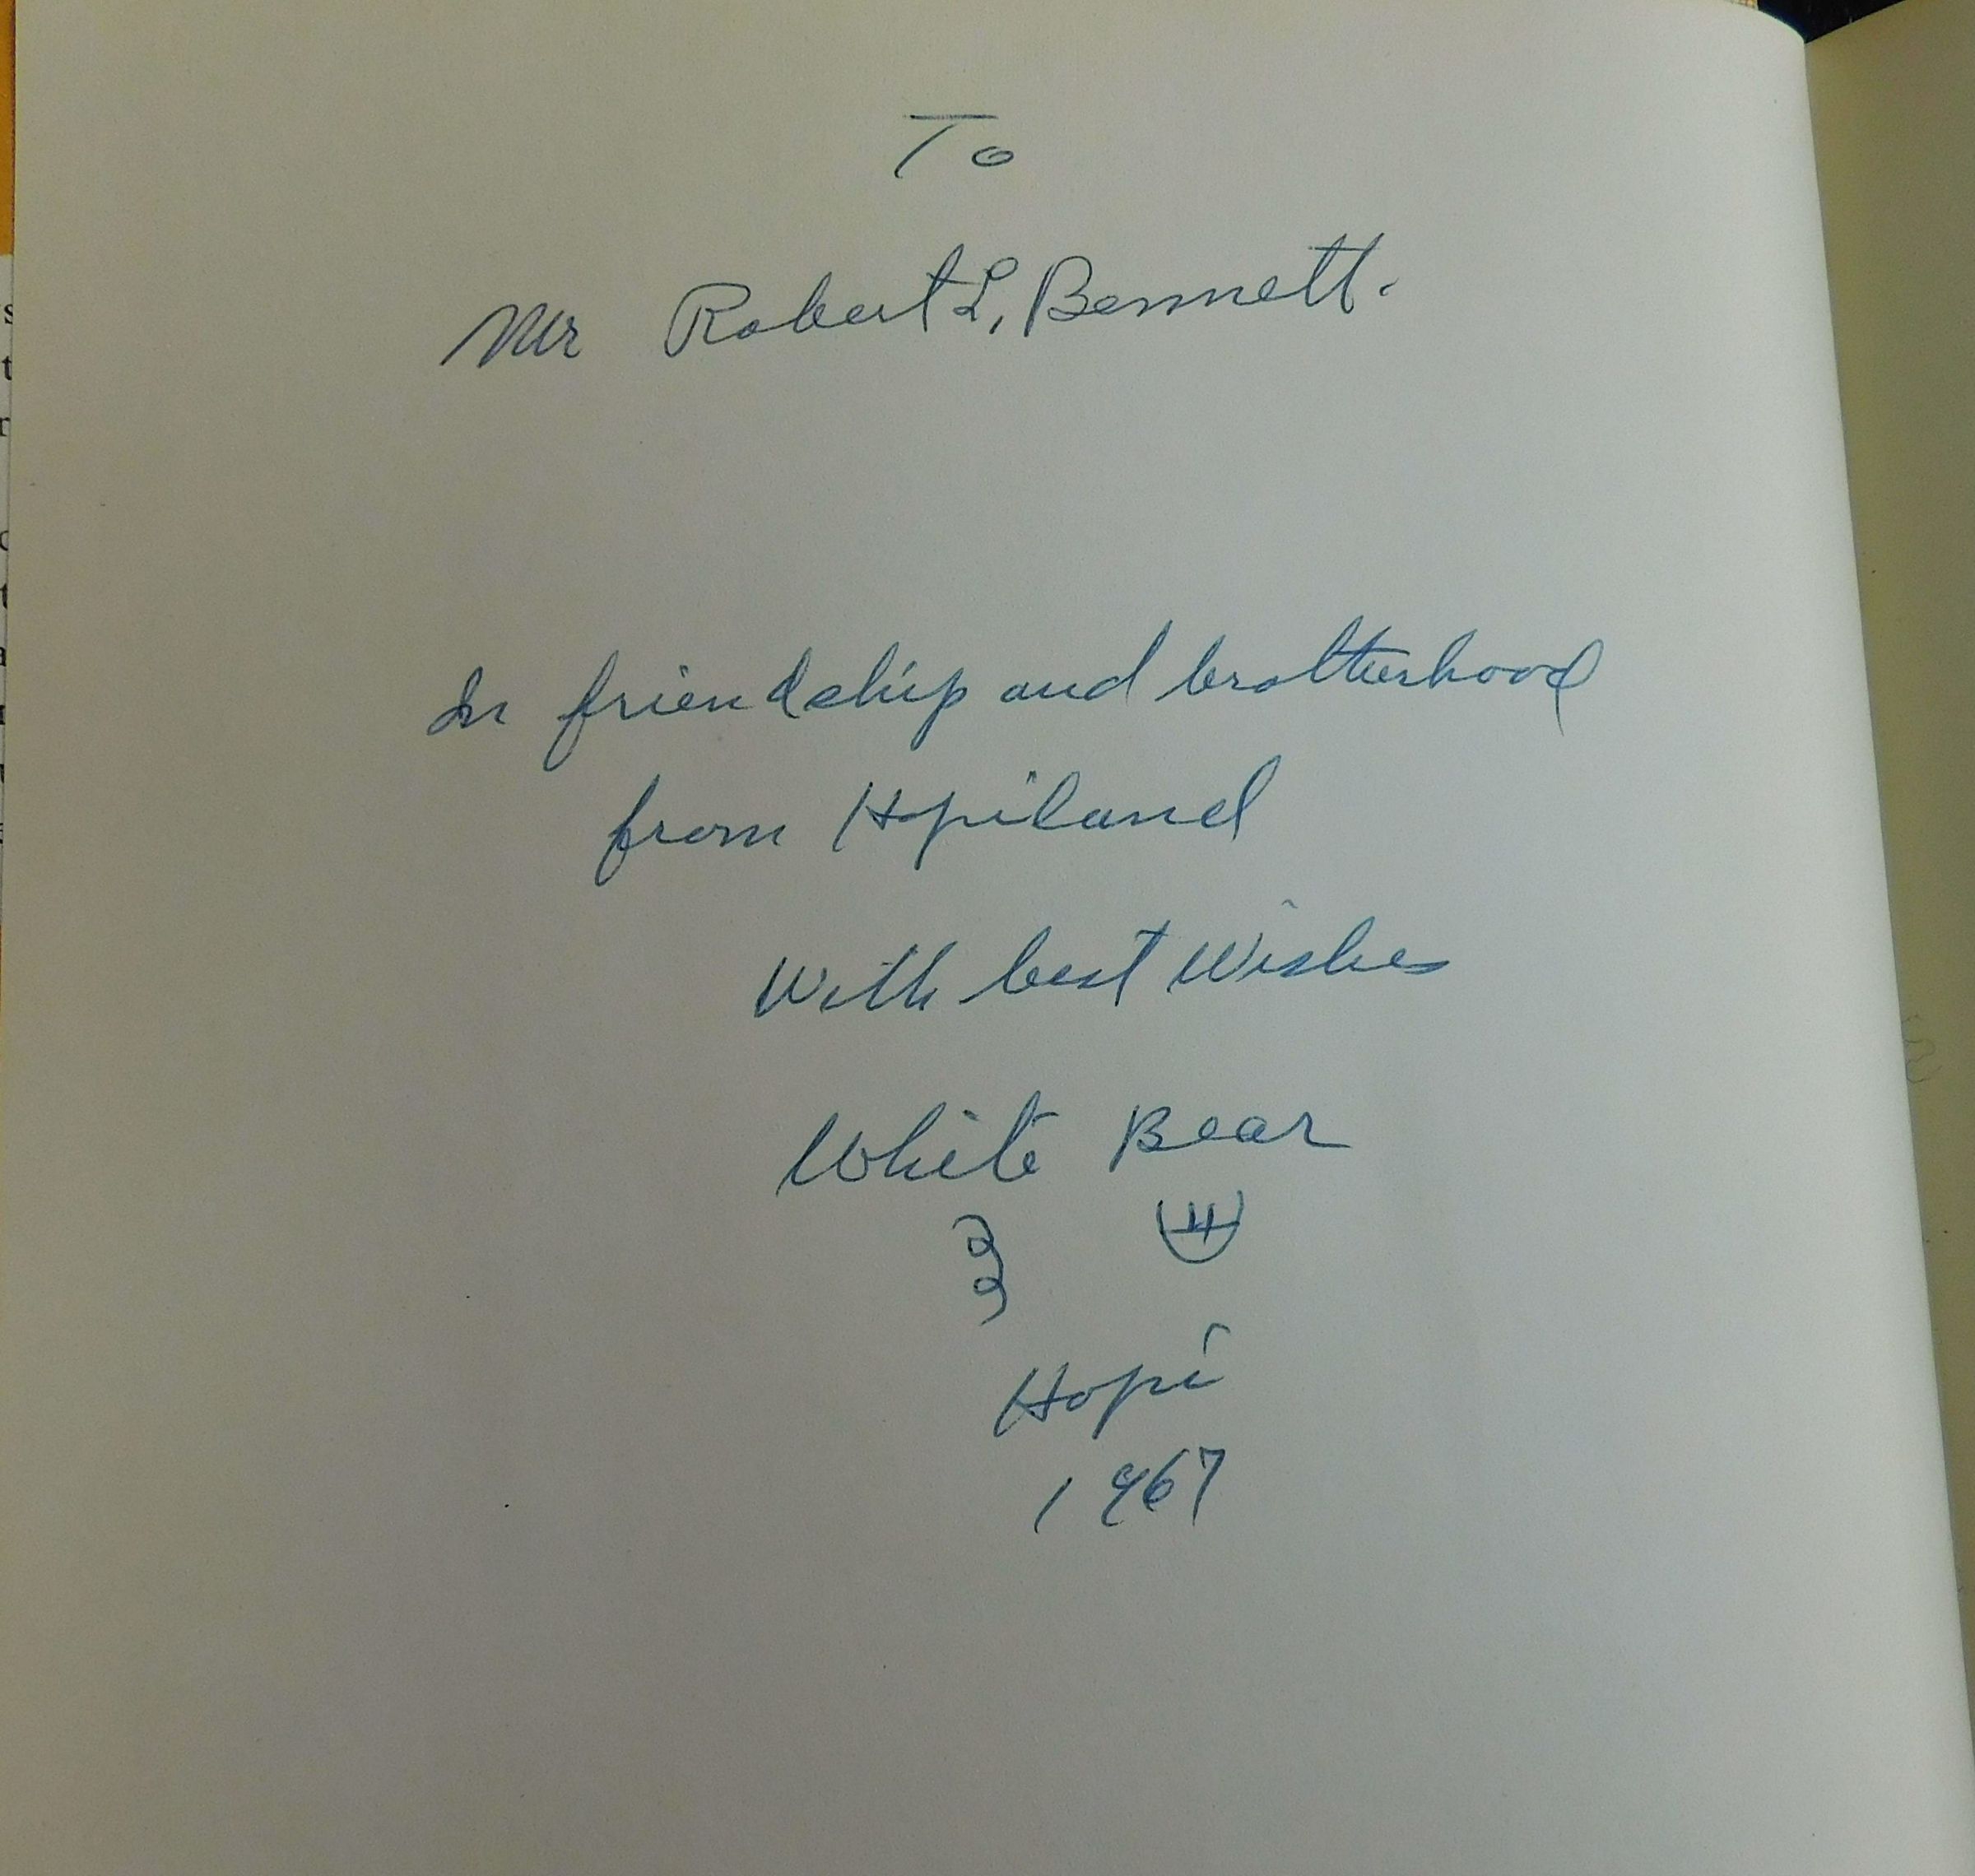 To
Mr Robert L, Bennett.
In friendship and brotherhood
from Hopiland
With best Wishes
White Bear
Hopi
1967